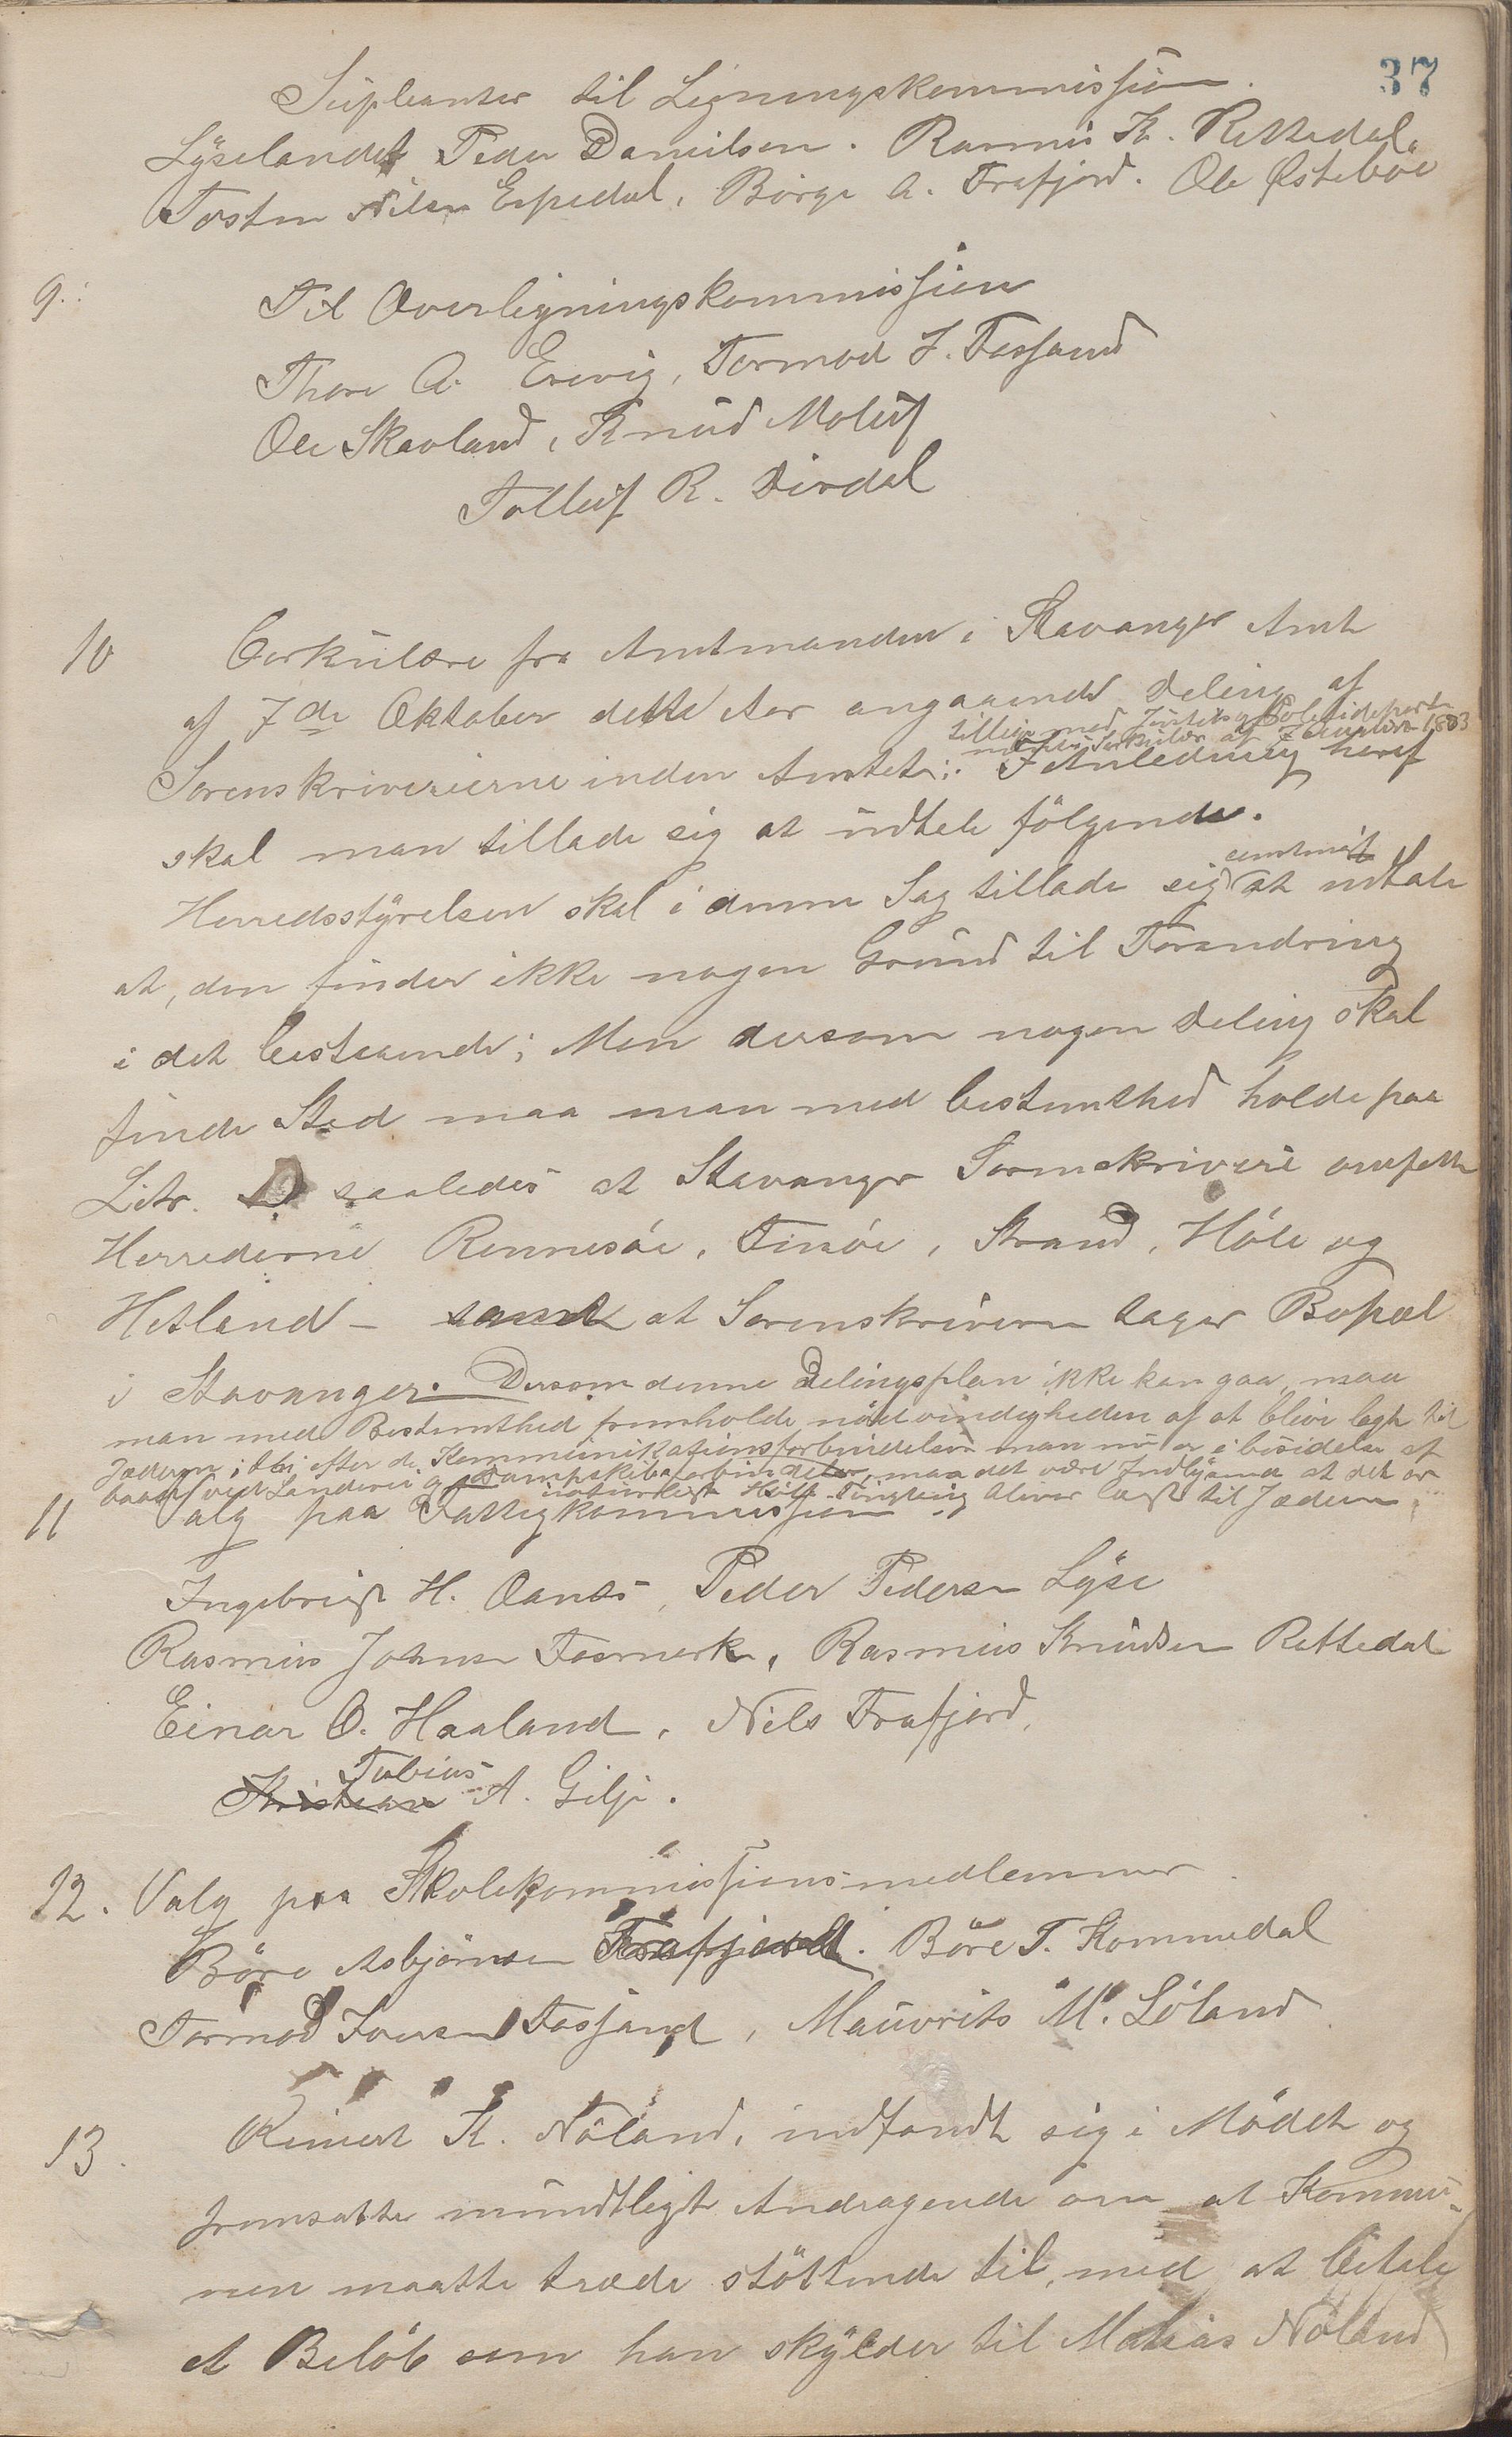 37
Supleanter til Ligningskommission.
Lÿselandet Peder Danielsen. Rasmus K. Rettedal,
Tosten Nilsen Espedal, Börge A. Frafjord. Ole Østeböe
9.: Til Overligningskommission
Thore A. Erevig, Tormod J. Fossand
Ole Skavland, Knud Moluf
Tolluf R. Dirdal
10 Cirkulære fra Amtmanden i Stavanger Amt
af 7de Oktober dette Aar angaaende Deling af
tilligemed Justits og Politidepartementets Cirkulær af 7 Januar 1883
Sorenskriverierne inden Amtet: I Anledning heraf
skal man tillade sig at udtale fölgende.
Herredsstÿrelsen skal i denne Sag tillade sig at udtale
at, den finder ikke nogen Grund til Forandring
i det bestaaende; Men dersom nogen Deling skal
finde Sted maa man med bestemthed holde paa
Litr. D saaledes at Stavanger Sorenskriveri omfatte
Herrederne Rennesöe, Finöe, Strand, Höle og
Hetland – samt at Sorenskriveren tager Bopæl
i Stavanger. Dersom denne Delingsplan ikke kan gaa, maa
man med Bestemthed fremholde nödvendigheden af at blive lagt til
Jæderen; thi efter de Kommunikationsforbindelser man nu er i besidelse af
baade ved Landevei og Dampskibsforbindelse, maa det være Indlÿsende at det er
naturligst Höle Thinglag bliver lagt til Jæderen.
11 Valg paa Fattigkommission.
Ingebrigt H. Oanes, Peder Pedersen Lÿse
Rasmus Johnsen Fosmark, Rasmus Knudsen Rettedal
Einar O. Haaland, Nils Frafjord,
Tobias
Kristian A. Gilje.
12. Valg paa Skolekommissionsmedlemmer
Böre Asbjörnsen Frafjord. Böre T. Kommedal
Tormod Iversen Fossand, Mauvrits M. Löland
13. Reinert K. Nöland, indfandt sig i Mödet og
fremsatte mundtligt Andragende om at Kommu-
nen maatte træde stöttende til, med at betale
et Belöb som han skÿlder til Matias Nöland